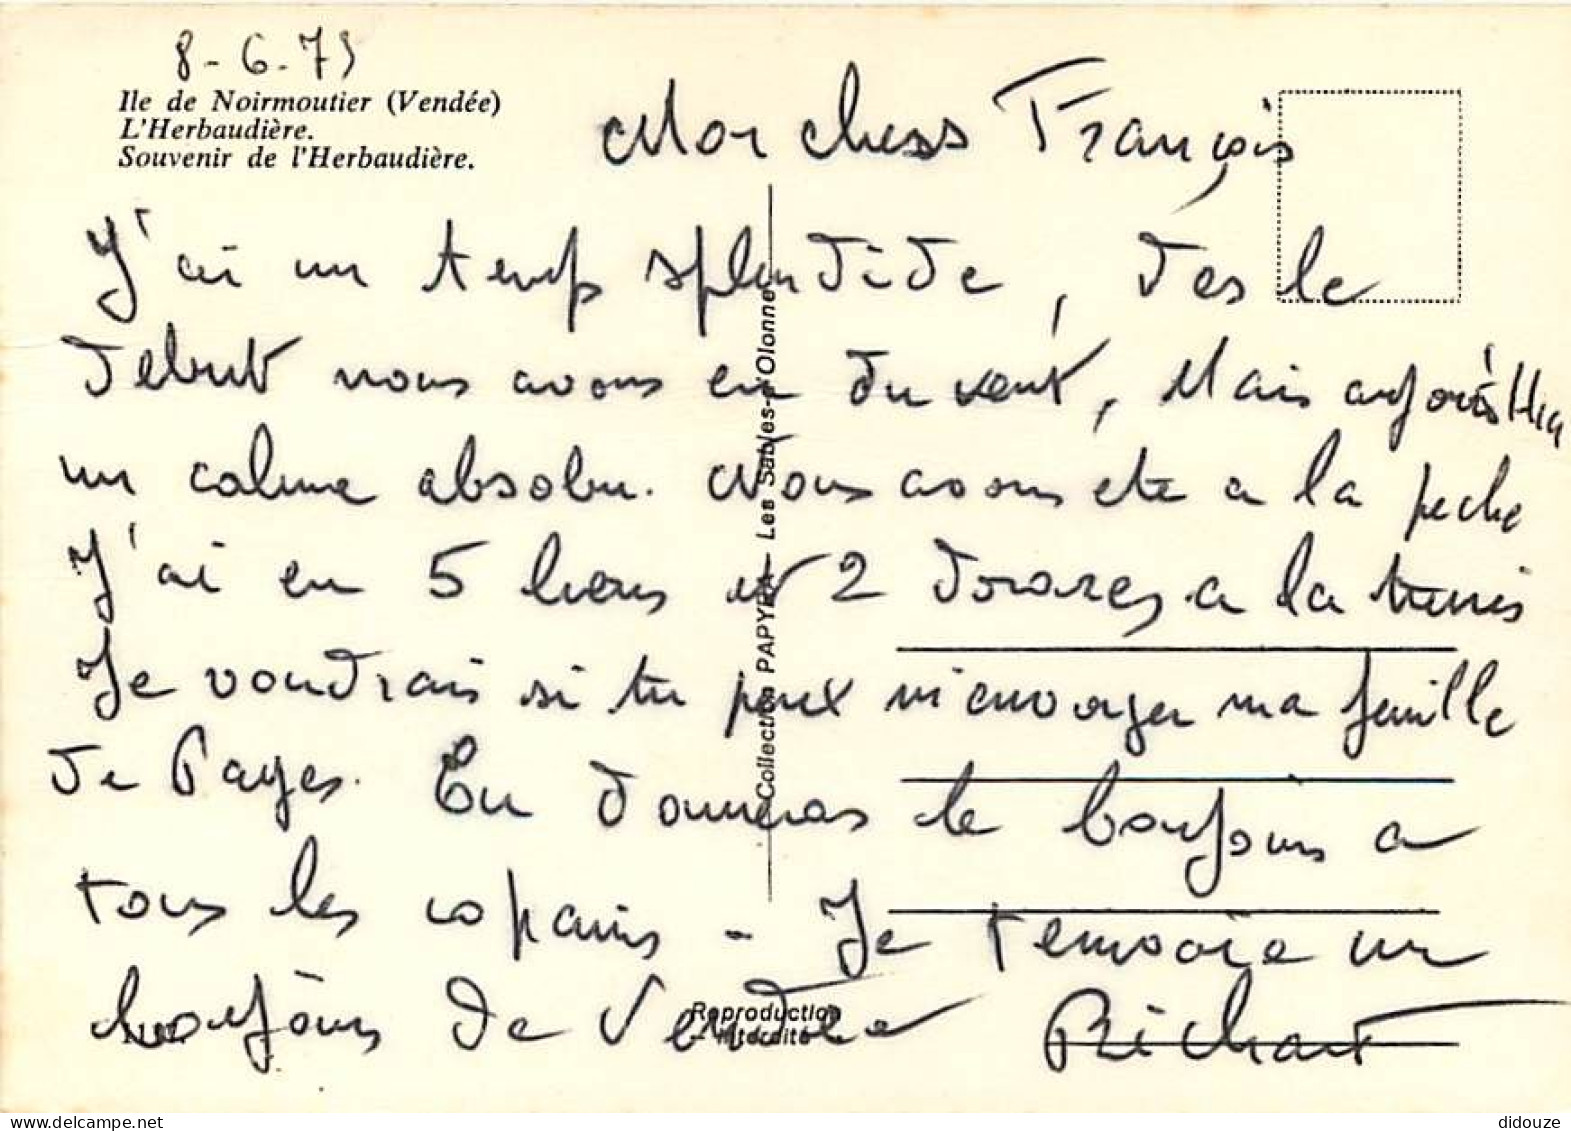 8-6-75
Ile de Noirmoutier (Vendée)
L'Herbaudière.
Souvenir de l'Herbaudière.
Mon chess François
J'ai un temps splendide, des le
debut nous avons eu du vent, Mais
un calme absolu. Nous avons ete a la peche
J'ai eu 5 et 2 dorares a la
Je voudrais si tu peux m'envoyer ma feuille
de Payes. En donneras le bonjours a
tous les copains - Je t'envoie un
bonjours de Vendee Richard
Collection PAPYER - Les Sables-d'Olonne
Reproduction
interdite
didouze